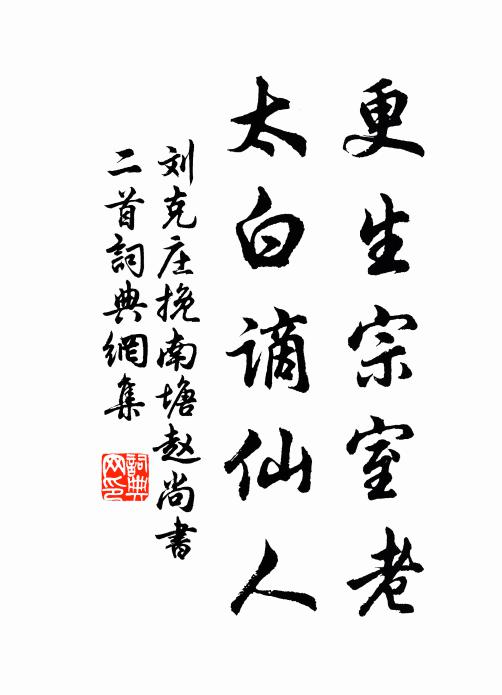 更生宗室老
太白谪仙人
刘克庄挽南塘赵尚書
二首詞典網集
詞典
网印